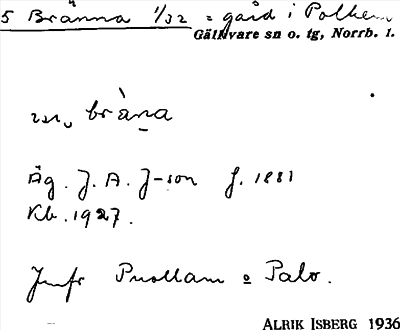 5 Bränna 1/32 = gård i Polken
Gällivare sn o. tg, Norrb. l.
un. bràna
Äg. J. A. J-son f. 1881
Kb. 1927.
Jmfr Puollam o Palo.
ALRIK ISBERG 1936